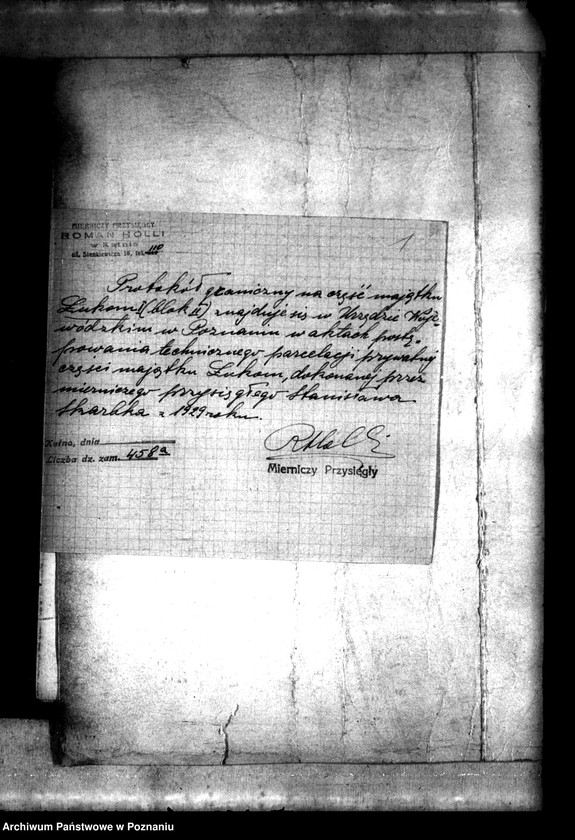 MIERNICZY PRZYSIĘGŁY
ROMAN HOLLI
w Kutnie
ul. Sienkiewicza 18, tel. 110
1
Protokół graniczny na część majątku
Łukom I (blok II) znajduje się w Urzędzie Woje-
wódzkim w Poznaniu w aktach postę-
powania technicznego parcelacji prywatnej
części majątku Łukom, dokonanej przez
mierniczego przysięgłego Stanisława
Skarbka z 1929 roku.
Kutno, dnia
Liczba dz. zam. 458a
Mierniczy Przysięgły
Archiwum Państwowe w Poznaniu